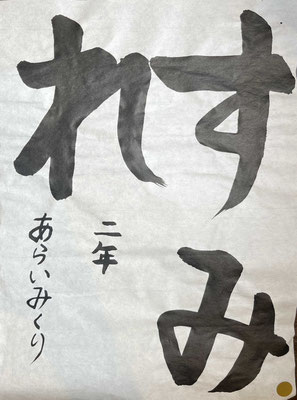 すみ
れ
二年
あらいみくり